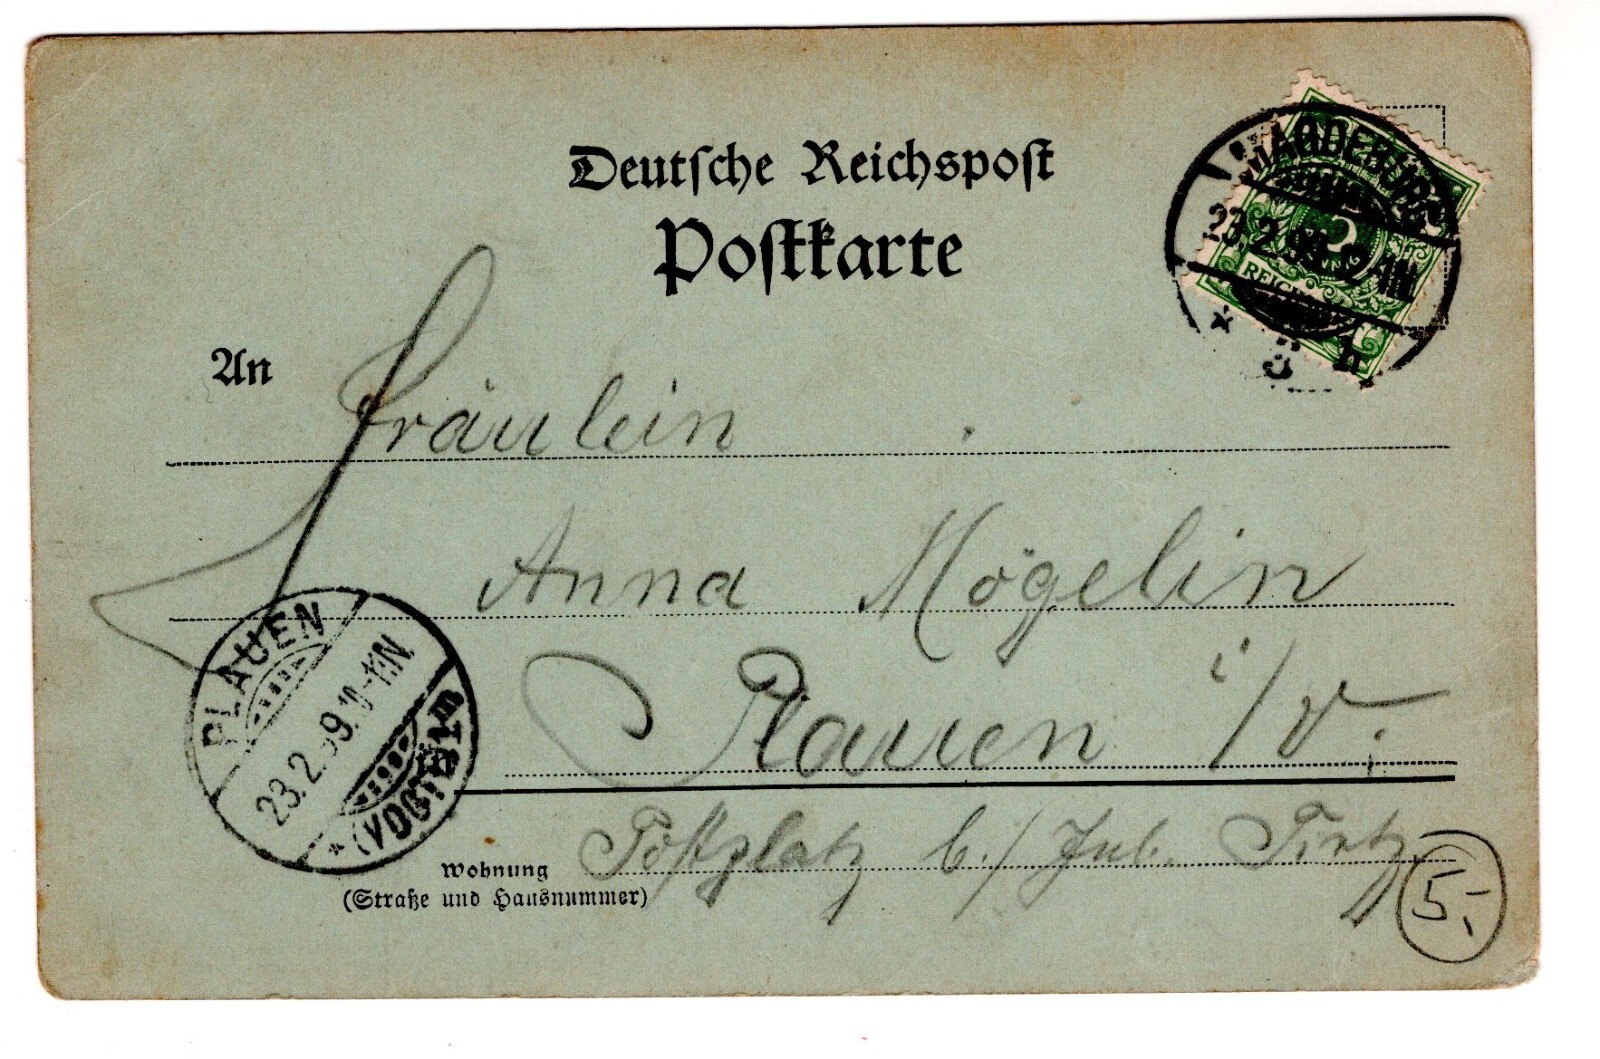 Deutsche Reichspost
Postkarte
MAGDEBURG
23.2.99
REICHSPOST
* 3 h
An
Fräulein
Anna Mögelin
Plauen i/V.
PLAUEN
23.2.99. 10-11N.
*(VOGTL.)
in
Wohnung
(Straße und Hausnummer)
Postplatz b./ Jul. Tirtz
5,-